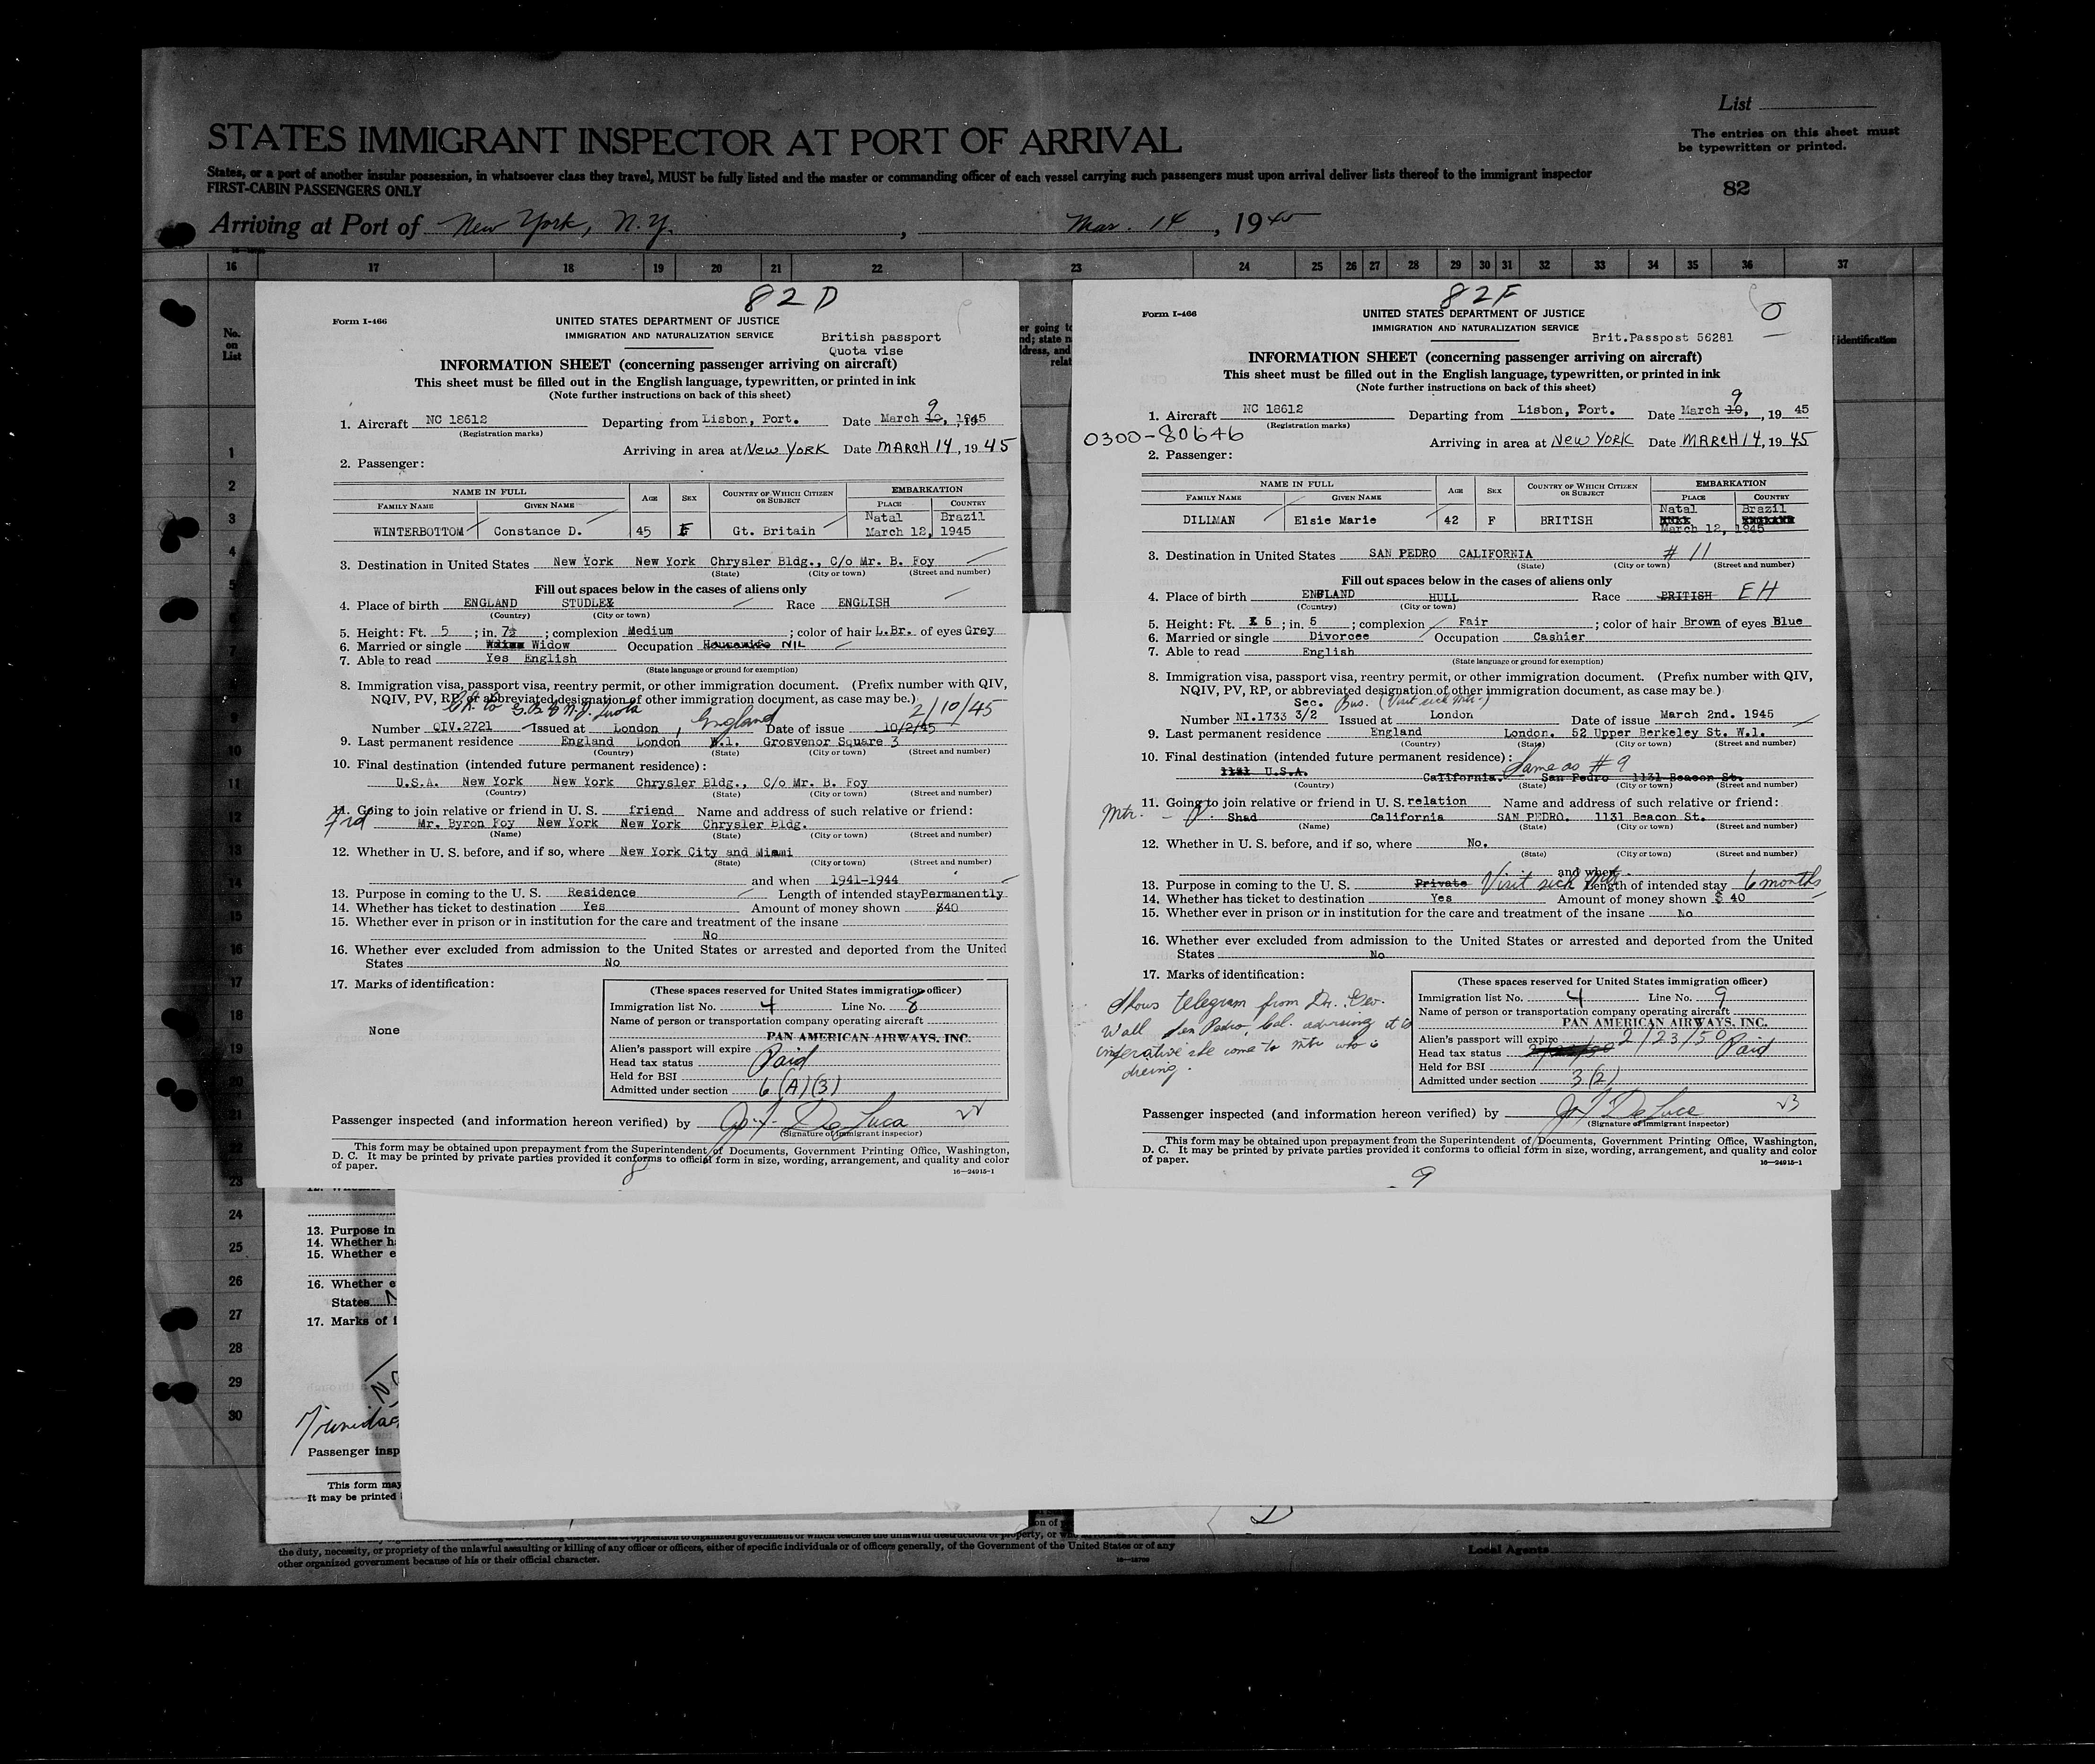 List
STATES IMMIGRANT INSPECTOR AT PORT OF ARRIVAL
The entries on this sheet must
be typewritten or printed.
States, or a port of another insular possession, in whatsoever class they travel, MUST be fully listed and the master or commanding officer of each vessel carrying such passengers must upon arrival deliver lists thereof to the immigrant inspector
FIRST-CABIN PASSENGERS ONLY
82
Arriving at Port of New York, N.Y., Mar. 14, 1945
16 17 18 19 20 21 22 23 24 25 26 27 28 29 30 31 32 33 34 35 36 37
No.
on
List
82 D
Form I-466
UNITED STATES DEPARTMENT OF JUSTICE
IMMIGRATION AND NATURALIZATION SERVICE
British passport
Quota vise
INFORMATION SHEET (concerning passenger arriving on aircraft)
This sheet must be filled out in the English language, typewritten, or printed in ink
(Note further instructions on back of this sheet)
1. Aircraft NC 18612 Departing from Lisbon, Port. Date March 10, 9 1945
(Registration marks)
Arriving in area at New York Date MARCH 14, 1945
2. Passenger:
NAME IN FULL AGE SEX COUNTRY OF WHICH CITIZEN OR SUBJECT EMBARKATION
FAMILY NAME GIVEN NAME PLACE COUNTRY
WINTERBOTTOM Constance D. 45 F Gt. Britain Natal Brazil
March 12, 1945
3. Destination in United States New York New York Chrysler Bldg., C/o Mr. B. Foy
(State) (City or town) (Street and number)
Fill out spaces below in the cases of aliens only
4. Place of birth ENGLAND STUDLEY Race ENGLISH
(Country) (City or town)
5. Height: Ft. 5 ; in. 7½ ; complexion Medium ; color of hair L.Br. of eyes Grey
6. Married or single Widow Occupation Housewife NIL
7. Able to read Yes English
(State language or ground for exemption)
8. Immigration visa, passport visa, reentry permit, or other immigration document. (Prefix number with QIV,
NQIV, PV, RP, or abbreviated designation of other immigration document, as case may be.)
2/10/45
Number QIV.2721 Issued at London, England Date of issue 10/2/45
9. Last permanent residence England London W.1. Grosvenor Square 3
(Country) (State) (City or town) (Street and number)
10. Final destination (intended future permanent residence):
U.S.A. New York New York Chrysler Bldg., C/o Mr. B. Foy
(Country) (State) (City or town) (Street and number)
11. Going to join relative or friend in U. S. friend Name and address of such relative or friend:
Frd Mr. Byron Foy New York New York Chrysler Bldg.
(Name) (State) (City or town) (Street and number)
12. Whether in U. S. before, and if so, where New York City and Miami
(State) (City or town) (Street and number)
and when 1941-1944
13. Purpose in coming to the U. S. Residence Length of intended stay Permanently
14. Whether has ticket to destination Yes Amount of money shown $40
15. Whether ever in prison or in institution for the care and treatment of the insane
No
16. Whether ever excluded from admission to the United States or arrested and deported from the United
States No
17. Marks of identification:
None
(These spaces reserved for United States immigration officer)
Immigration list No. 4 Line No. 8
Name of person or transportation company operating aircraft
PAN AMERICAN AIRWAYS, INC.
Alien's passport will expire
Head tax status Paid
Held for BSI
Admitted under section 6(A)(3)
Passenger inspected (and information hereon verified) by Jos. F. De Luca
(Signature of immigrant inspector)
This form may be obtained upon prepayment from the Superintendent of Documents, Government Printing Office, Washington,
D. C. It may be printed by private parties provided it conforms to official form in size, wording, arrangement, and quality and color
of paper.
16—24915-1
8
82F
Form I-466
UNITED STATES DEPARTMENT OF JUSTICE
IMMIGRATION AND NATURALIZATION SERVICE
Brit.Passpost 56281
INFORMATION SHEET (concerning passenger arriving on aircraft)
This sheet must be filled out in the English language, typewritten, or printed in ink
(Note further instructions on back of this sheet)
1. Aircraft NC 18612 Departing from Lisbon, Port. Date March 10, 9, 1945
(Registration marks)
0300-80646
Arriving in area at New York Date MARCH 14, 1945
2. Passenger:
NAME IN FULL AGE SEX COUNTRY OF WHICH CITIZEN OR SUBJECT EMBARKATION
FAMILY NAME GIVEN NAME PLACE COUNTRY
DILLMAN Elsie Marie 42 F BRITISH Natal Brazil
March 12, 1945
3. Destination in United States SAN PEDRO CALIFORNIA # 11
(State) (City or town) (Street and number)
Fill out spaces below in the cases of aliens only
4. Place of birth ENGLAND HULL Race BRITISH EH
(Country) (City or town)
5. Height: Ft. 5 ; in. 5 ; complexion Fair ; color of hair Brown of eyes Blue
6. Married or single Divorcee Occupation Cashier
7. Able to read English
(State language or ground for exemption)
8. Immigration visa, passport visa, reentry permit, or other immigration document. (Prefix number with QIV,
NQIV, PV, RP, or abbreviated designation of other immigration document, as case may be.)
Sec. Bus. (Visit sick Mtr.)
Number NI.1733 3/2 Issued at London Date of issue March 2nd. 1945
9. Last permanent residence England London. 52 Upper Berkeley St. W.1.
(Country) (State) (City or town) (Street and number)
10. Final destination (intended future permanent residence): Same as # 9
1131 U.S.A. California. San Pedro 1131 Beacon St.
(Country) (State) (City or town) (Street and number)
11. Going to join relative or friend in U. S. relation Name and address of such relative or friend:
Mtr. - Shad California SAN PEDRO. 1131 Beacon St.
(Name) (State) (City or town) (Street and number)
12. Whether in U. S. before, and if so, where No.
(State) (City or town) (Street and number)
and when
13. Purpose in coming to the U. S. Private Visit sick Mtr. Length of intended stay 6 months
14. Whether has ticket to destination Yes Amount of money shown $ 40
15. Whether ever in prison or in institution for the care and treatment of the insane No
16. Whether ever excluded from admission to the United States or arrested and deported from the United
States No
17. Marks of identification:
Shows telegram from Dr. Geo.
Wall San Pedro, Cal. advising it is
imperative she come to mtr who is
dieing.
(These spaces reserved for United States immigration officer)
Immigration list No. 4 Line No. 9
Name of person or transportation company operating aircraft
PAN AMERICAN AIRWAYS, INC.
Alien's passport will expire 2/23/50
Head tax status Paid
Held for BSI
Admitted under section 3(2)
Passenger inspected (and information hereon verified) by Jos. F. De Luca
(Signature of immigrant inspector)
This form may be obtained upon prepayment from the Superintendent of Documents, Government Printing Office, Washington,
D. C. It may be printed by private parties provided it conforms to official form in size, wording, arrangement, and quality and color
of paper.
16—24915-1
9
1
2
3
4
5
6
7
9
10
11
12
13
14
15
16
17
18
19
20
21
22
23
24
25
26
27
28
29
30
13. Purpose in
14. Whether h
15. Whether e
16. Whether e
States
17. Marks of i
Trinidad
Passenger insp
This form may
It may be printed
the duty, necessity, or propriety of the unlawful assaulting or killing of any officer or officers, either of specific individuals or of officers generally, of the Government of the United States or of any
other organized government because of his or their official character.
Local Agents